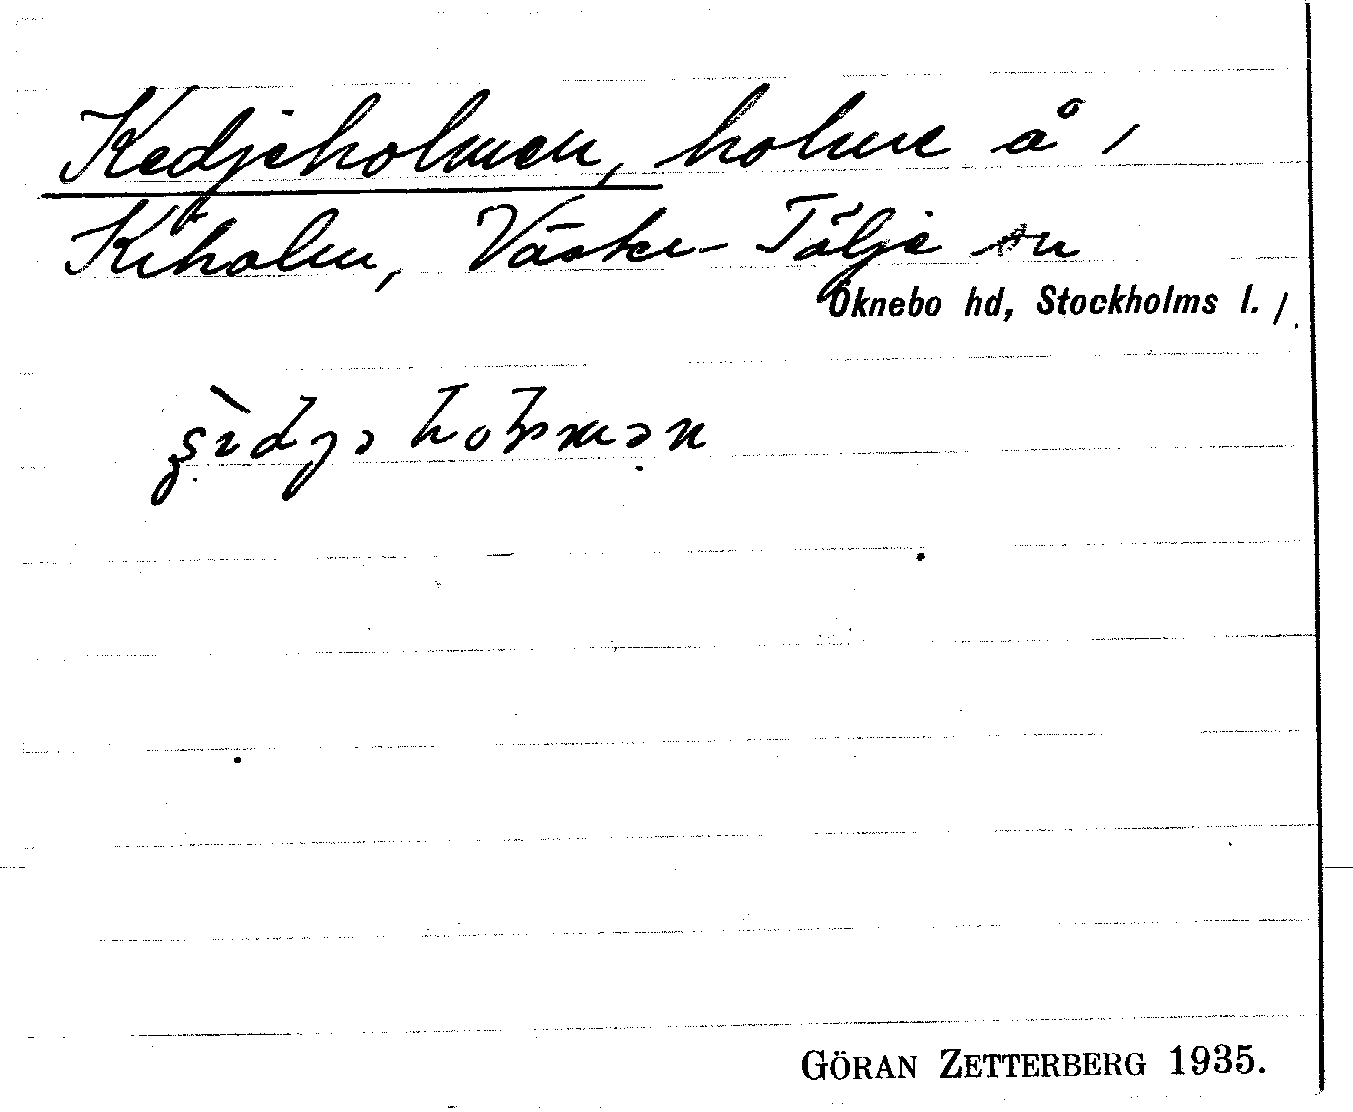 Kedjeholmen, holme å /
Kiholm, Väster-Tälje sn
Öknebo hd, Stockholms l. /.
GÖRAN ZETTERBERG 1935.